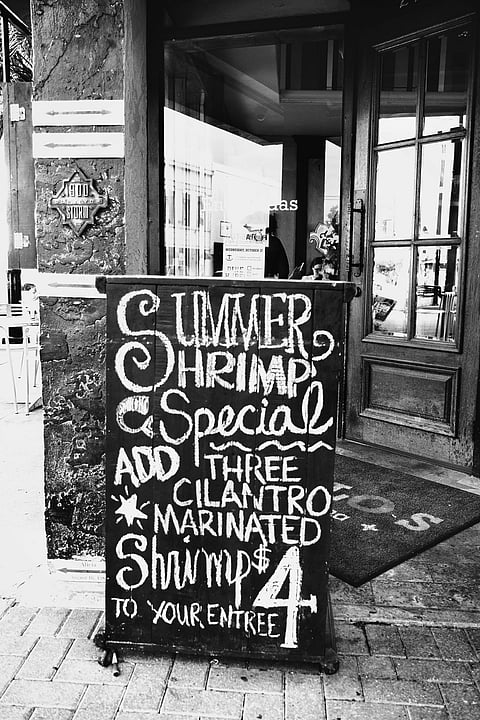 SUMMER
SHRIMP
Special
ADD THREE
CILANTRO
MARINATED
Shrimp $4
TO YOUR ENTREE